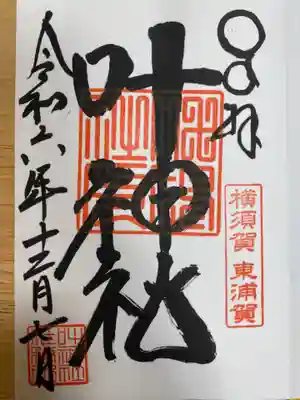 拝
横須賀 東浦賀
叶神社
令和六年十二月七日